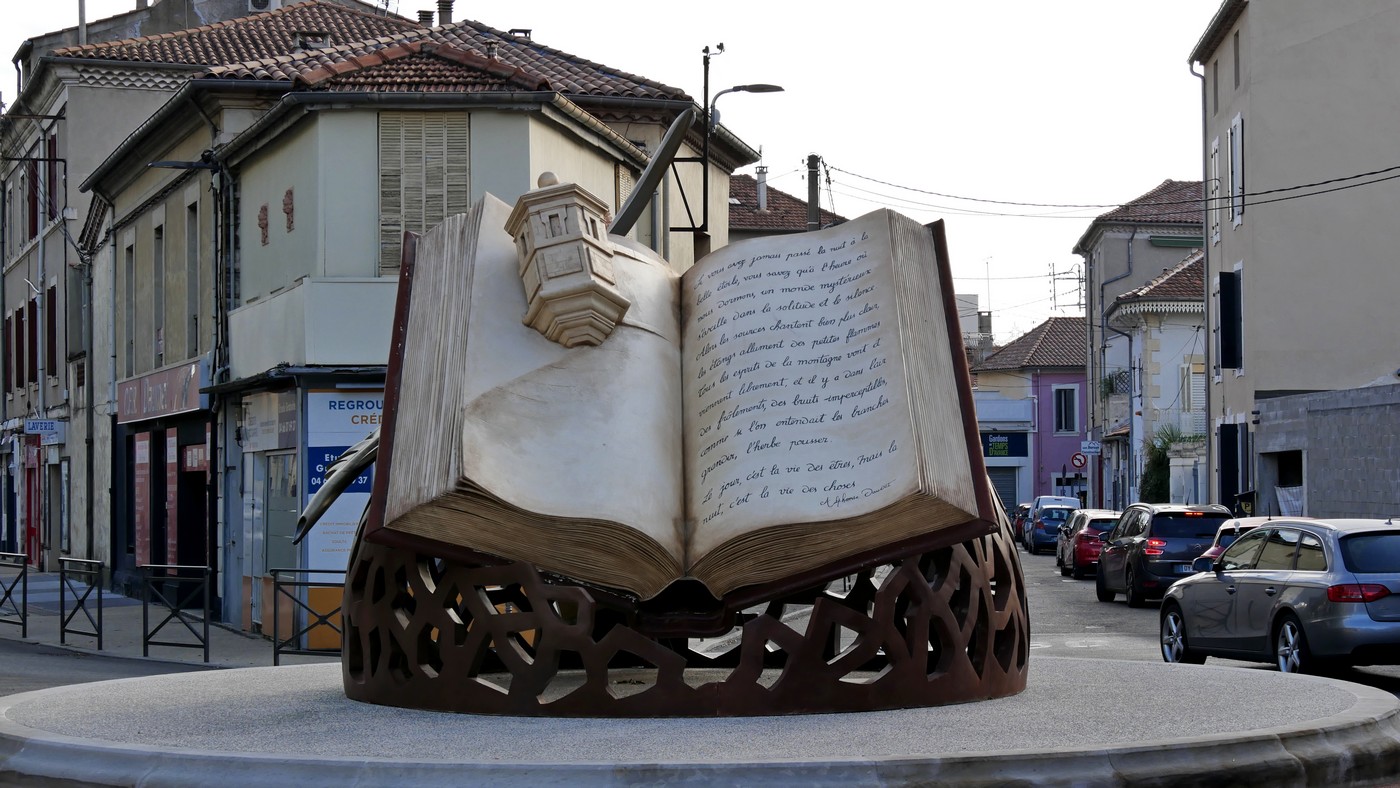 Si vous avez jamais passé la nuit à la
belle étoile, vous savez qu'à l'heure où
nous dormons, un monde mystérieux
s'éveille dans la solitude et le silence
Alors les sources chantent bien plus clair
les étangs allument des petites flammes
tous les esprits de la montagne vont et
viennent librement, et il y a dans l'air
des frôlements, des bruits imperceptibles,
comme si l'on entendait les branches
grandir, l'herbe pousser.
Le jour, c'est la vie des êtres, mais la
nuit, c'est la vie des choses
Alphonse Daudet
LAVERIE
REGROU
CRÉD
04 6
37
Gardons
LE TEMPS
D'AVANCE